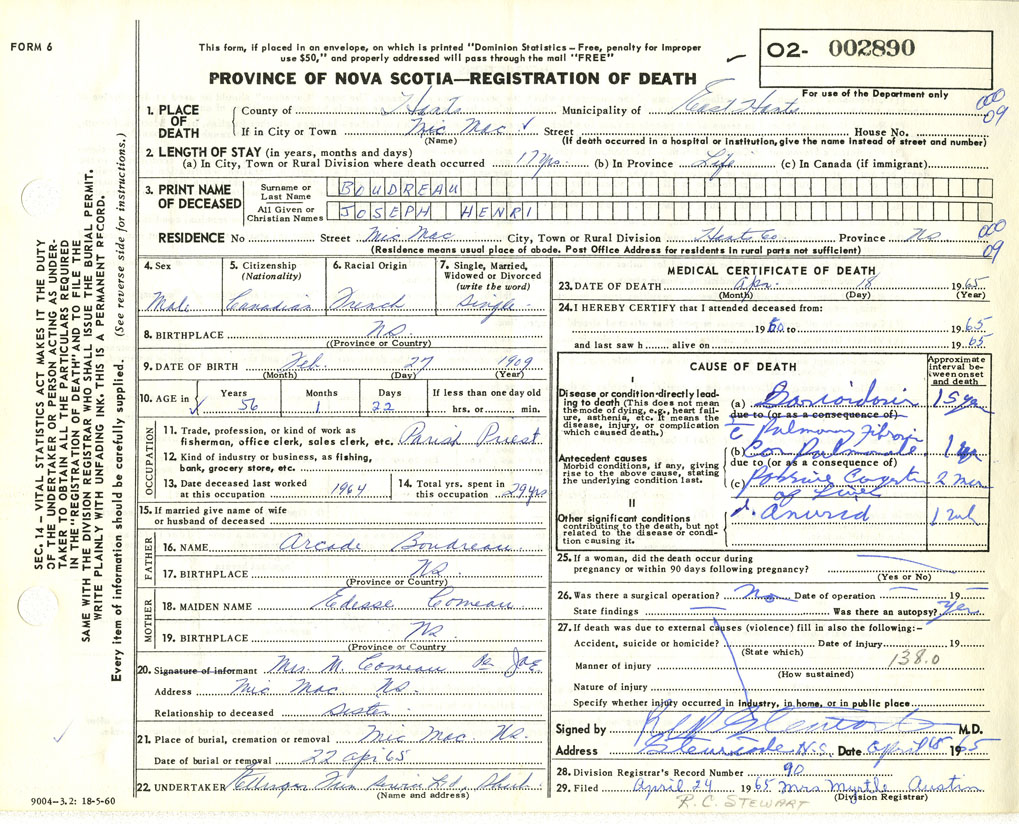 FORM 6
This form, if placed in an envelope, on which is printed "Dominion Statistics – Free, penalty for improper
use $50," and properly addressed will pass through the mail "FREE"
PROVINCE OF NOVA SCOTIA—REGISTRATION OF DEATH
02- 002890
For use of the Department only
1. PLACE OF DEATH County of Hants Municipality of East Hants
000 09
If in City or Town Mic Mac Street House No.
(Name) (If death occurred in a hospital or institution, give the name instead of street and number)
2. LENGTH OF STAY (in years, months and days)
(a) In City, Town or Rural Division where death occurred 17 yrs. (b) In Province Life (c) In Canada (if immigrant)
3. PRINT NAME OF DECEASED
Surname or Last Name BOUDREAU
All Given or Christian Names JOSEPH HENRI
RESIDENCE No Street Mic Mac City, Town or Rural Division Hants Co Province NS
000 09
(Residence means usual place of abode. Post Office Address for residents in rural parts not sufficient)
4. Sex Male
5. Citizenship (Nationality) Canadian
6. Racial Origin French
7. Single, Married, Widowed or Divorced (write the word) Single
8. BIRTHPLACE NS
((Province or Country)
9. DATE OF BIRTH Feb. 27 1909
(Month) (Day) (Year)
10. AGE in Years 56 Months 1 Days 22 If less than one day old hrs. or min.
OCCUPATION
11. Trade, profession, or kind of work as
fisherman, office clerk, sales clerk, etc. Parish Priest
12. Kind of industry or business, as fishing,
bank, grocery store, etc.
13. Date deceased last worked at this occupation 1964
14. Total yrs. spent in this occupation 29 yrs
15. If married give name of wife
or husband of deceased
FATHER
16. NAME Arcade Boudreau
17. BIRTHPLACE NS
(Province or Country)
MOTHER
18. MAIDEN NAME Edesse Comeau
19. BIRTHPLACE NS
(Province or Country)
20. Signature of informant Mrs. M. Comeau Per
Address Mic Mac NS.
Relationship to deceased Sister
21. Place of burial, cremation or removal Mic Mac Ns.
Date of burial or removal 22 apr 65
22. UNDERTAKER
(Name and address)
MEDICAL CERTIFICATE OF DEATH
23. DATE OF DEATH Apr. 18 1965
(Month) (Day) (Year)
24. I HEREBY CERTIFY that I attended deceased from:
1960 to 1965
and last saw h alive on 1965
CAUSE OF DEATH
Approximate interval between onset and death
I
Disease or condition directly leading to death (This does not mean the mode of dying, e.g., heart failure, asthenia, etc. It means the disease, injury, or complication which caused death.)
(a) 15 yrs
due to (or as a consequence of)
c̄ Pulmonary Fibrosis
Antecedent causes
Morbid conditions, if any, giving rise to the above cause, stating the underlying condition last.
(b) Cor Pulmonale 1 yr
due to (or as a consequence of)
(c) Passive 2 mos
of Liver
II
Other significant conditions
contributing to the death, but not related to the disease or condition causing it.
d. 1 wk
25. If a woman, did the death occur during
pregnancy or within 90 days following pregnancy?
(Yes or No)
26. Was there a surgical operation? No Date of operation 19
State findings Was there an autopsy? Yes
27. If death was due to external causes (violence) fill in also the following:–
Accident, suicide or homicide? Date of injury 19
(State which) 138.0
Manner of injury
(How sustained)
Nature of injury
Specify whether injury occurred in industry, in home, or in public place
Signed by M.D.
Address N.S. Date April 18 1965
28. Division Registrar's Record Number 90
29. Filed April 24 1965 Mrs Myrtle Austin
(Division Registrar)
R.C. STEWART
SEC. 14 – VITAL STATISTICS ACT MAKES IT THE DUTY
OF THE UNDERTAKER OR PERSON ACTING AS UNDER-
TAKER TO OBTAIN ALL THE PARTICULARS REQUIRED
IN THE "REGISTRATION OF DEATH" AND TO FILE THE
SAME WITH THE DIVISION REGISTRAR WHO SHALL ISSUE THE BURIAL PERMIT.
WRITE PLAINLY WITH UNFADING INK. THIS IS A PERMANENT RECORD.
Every item of information should be carefully supplied. (See reverse side for instructions.)
9004–3.2: 18-5-60